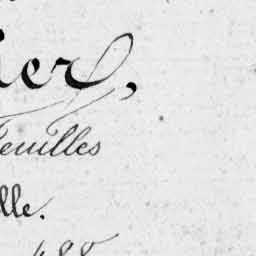 ier,
feuilles
lle.
188